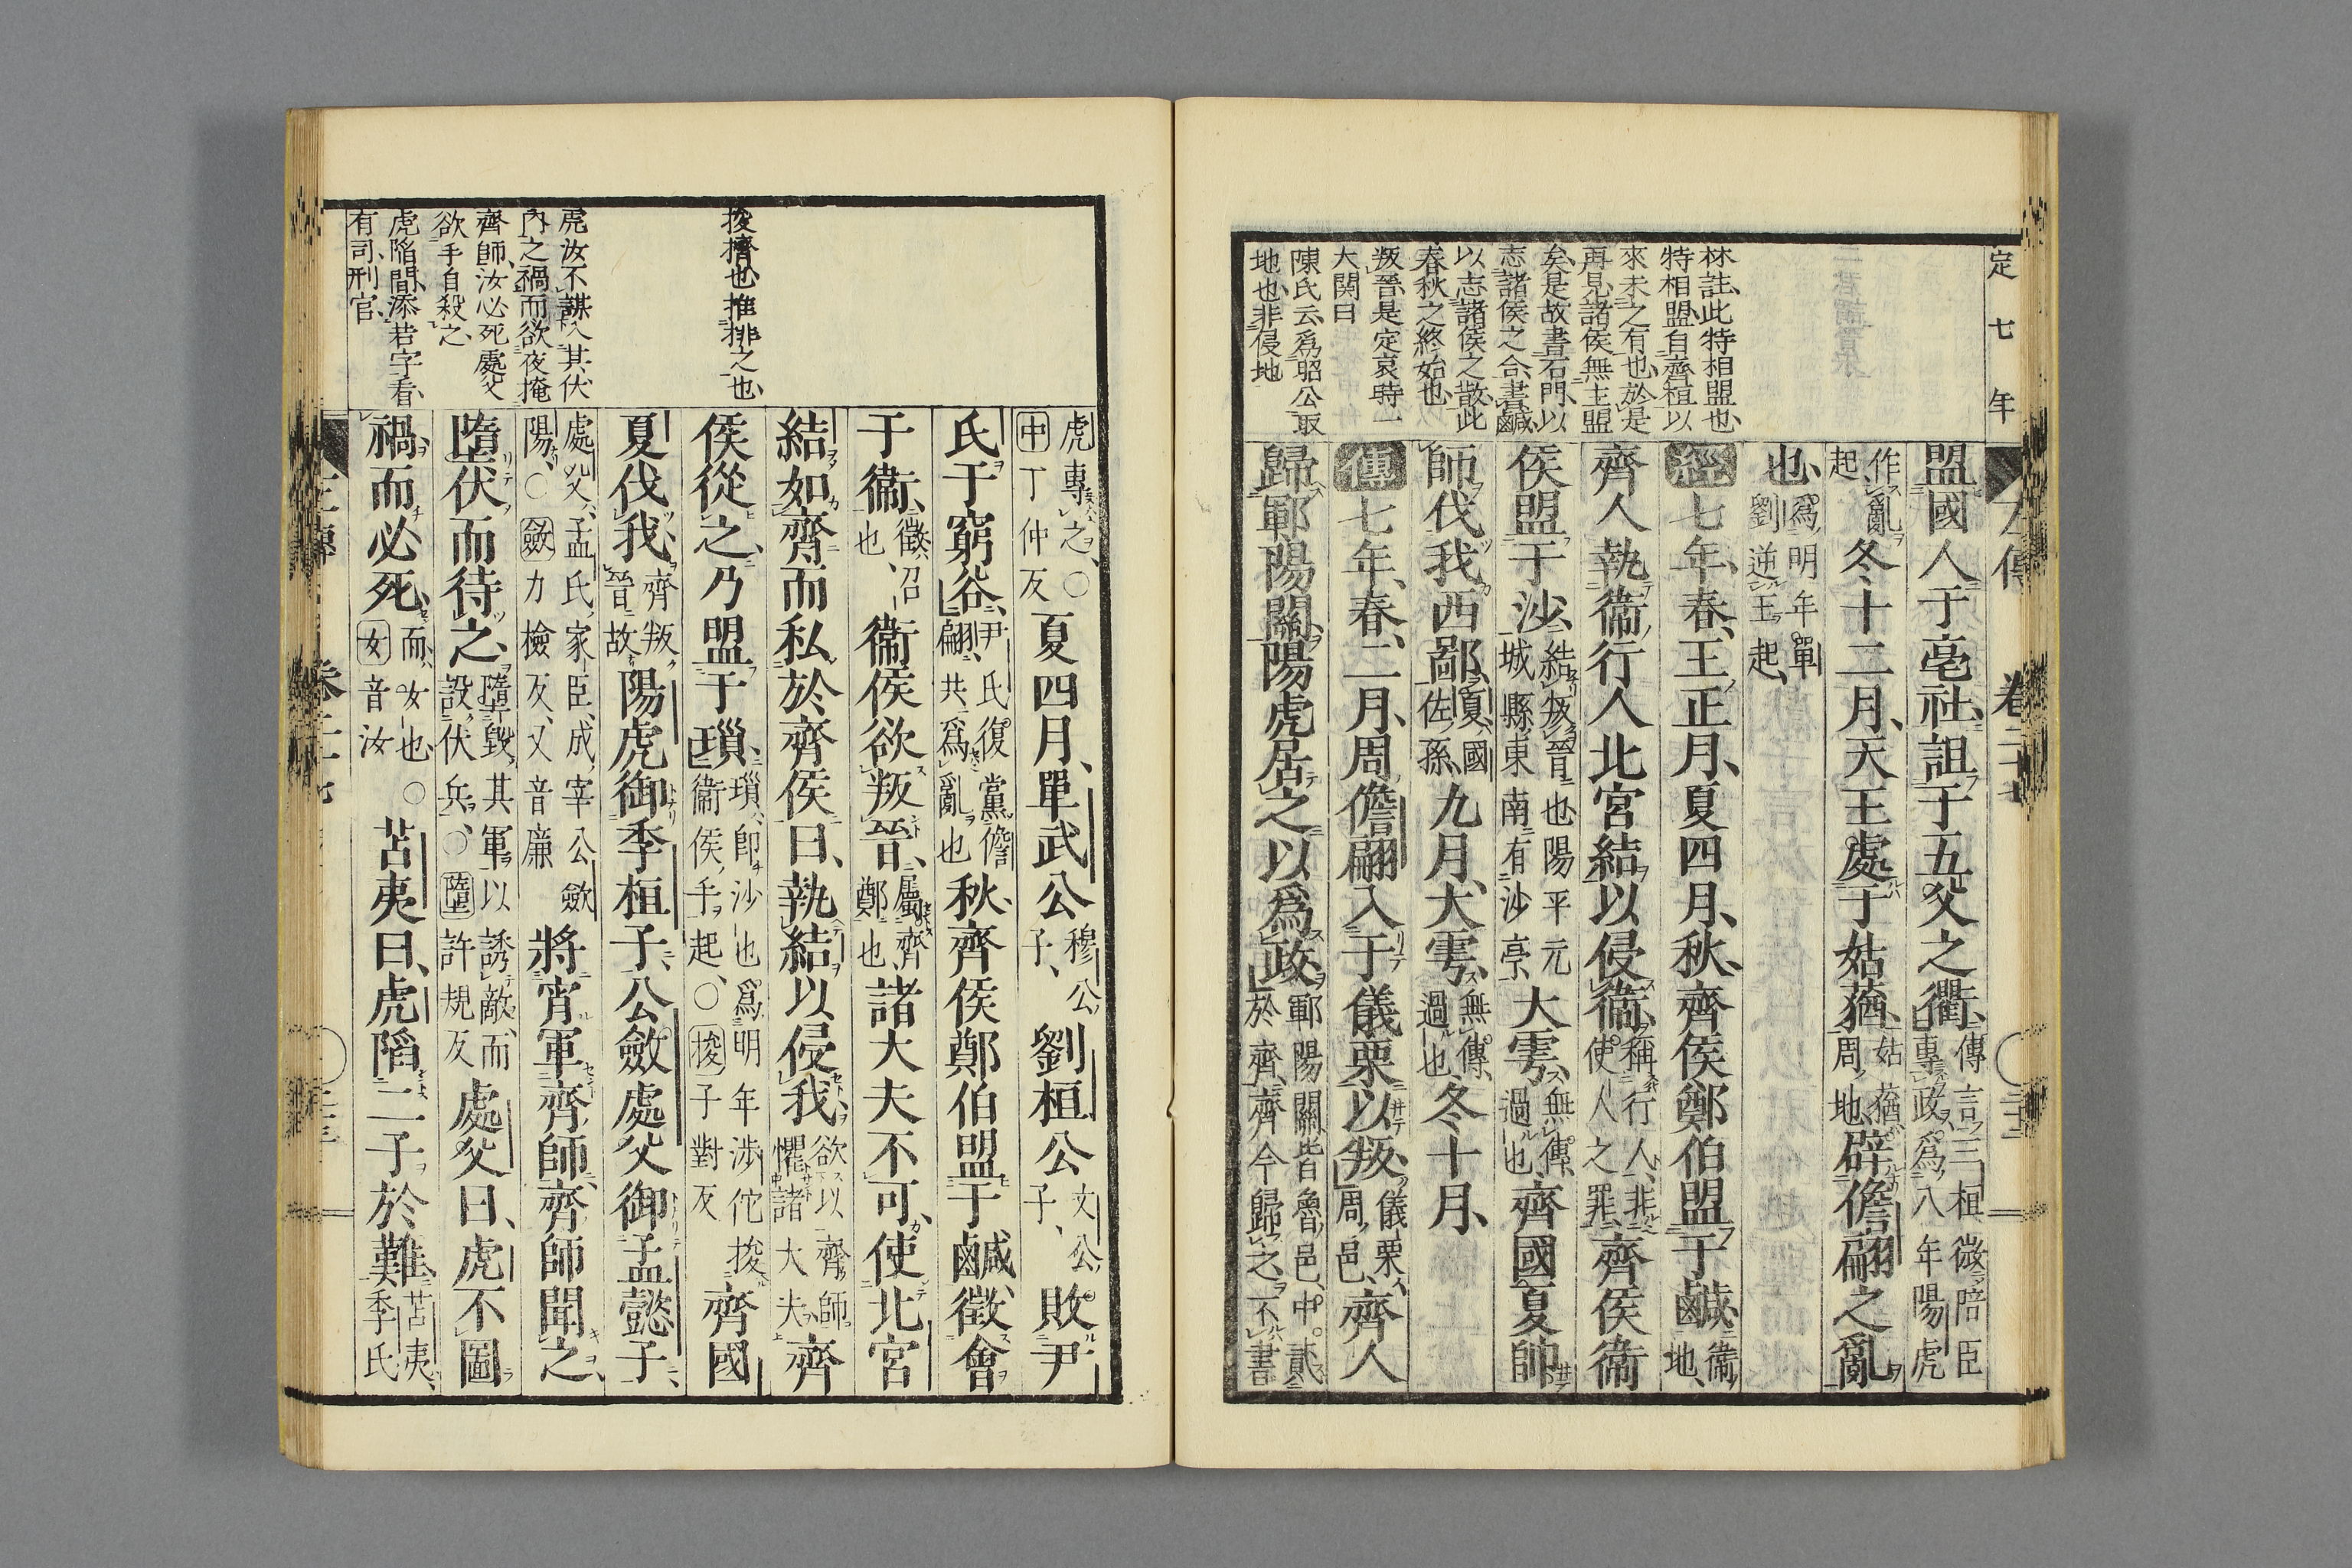 定七年
左傳 卷二十七
林註此特相盟也
特相盟自齊桓以
來未之有也於是
再見諸侯無主盟
矣是故書石門以
志諸侯之合書鹹
以志諸侯之散此
春秋之終始也
叛晉是定哀時一
大関曰
陳氏云爲昭公取
地也非侵地
盟國人于亳社詛于五父之衢傳言三桓微陪臣專政爲八年陽虎
作亂起冬十二月天王處于姑蕕姑蕕周地辟儋翩之亂
也爲明年單劉逆王起
經七年春王正月夏四月秋齊侯鄭伯盟于鹹衞地
齊人執衞行人北宮結以侵衞稱行人非使人之罪齊侯衞
侯盟于沙結叛晉也陽平元城縣東南有沙亭大雩無傳過也齊國夏帥
師伐我西鄙夏國佐孫九月大雩無傳過也冬十月
傳七年春二月周儋翩入于儀栗以叛儀栗周邑齊人
歸鄆陽關陽虎居之以爲政鄆陽關皆魯邑中貳於齊齊今歸之不書
虎專之○中丁仲反夏四月單武公穆公子劉桓公文公子敗尹
氏于窮谷尹氏復黨儋翩共爲亂也秋齊侯鄭伯盟于鹹徵會
于衞徵召也衞侯欲叛晉屬齊鄭也諸大夫不可使北宮
結如齊而私於齊侯曰執結以侵我欲以齊師懼諸大夫齊
侯從之乃盟于瑣瑣即沙也爲明年涉佗捘衞侯手起○捘子對反齊國
夏伐我齊叛晉故陽虎御季桓子公斂處父御孟懿子
處父孟氏家臣成宰公斂陽○斂力檢反又音廉將宵軍齊師齊師聞之
墮伏而待之墮毀其軍以誘敵而設伏兵○墮許規反處父曰虎不圖
禍而必死而女也○女音汝苫夷曰虎陷二子於難苫夷季氏
捘擠也推排之也
虎汝不謀入其伏
内之禍而欲夜掩
齊師汝必死處父
欲手自殺之
虎陷間添若字看
有司刑官